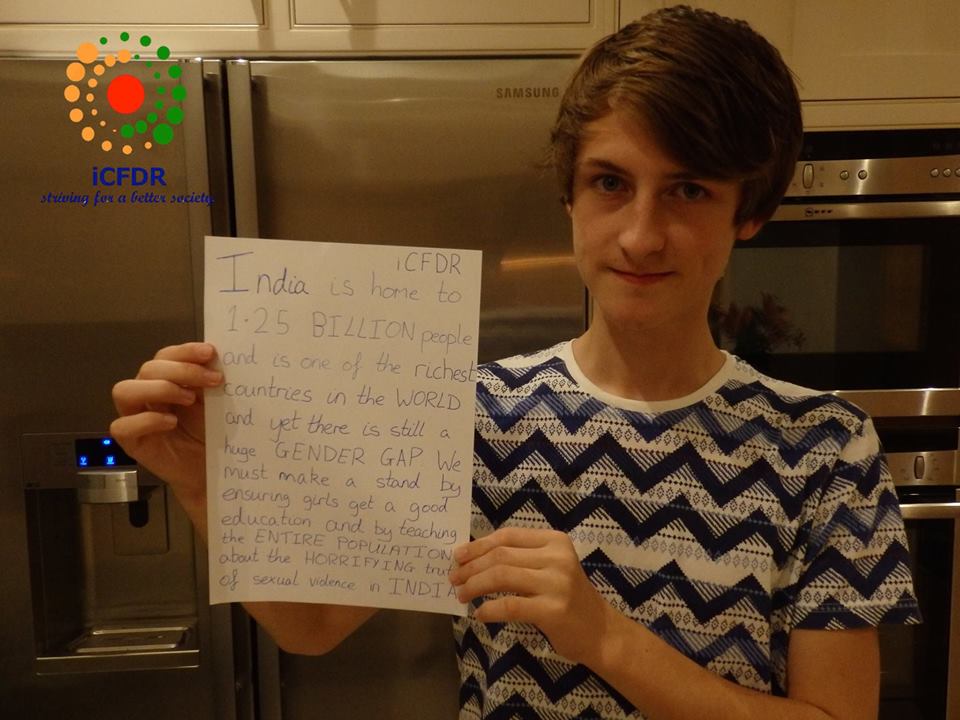 iCFDR
striving for a better society
SAMSUNG
NEFF
iCFDR
India is home to
1.25 BILLION people
and is one of the richest
countries in the WORLD
and yet there is still a
huge GENDER GAP. We
must make a stand by
ensuring girls get a good
education and by teaching
the ENTIRE POPULATION
about the HORRIFYING trut
of sexual vidence in INDIA